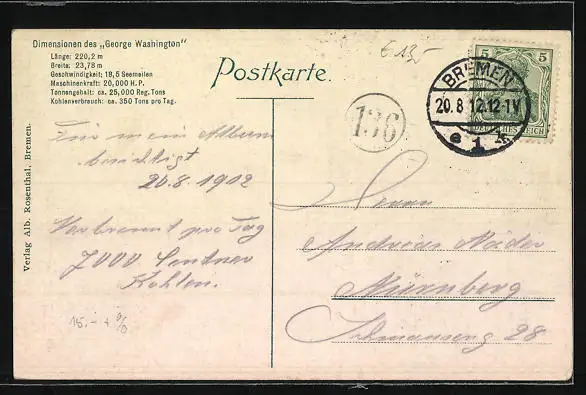 Dimensionen des „George Washington"
Länge: 220,2 m
Breite: 23,78 m
Geschwindigkeit: 18,5 Seemeilen
Maschinenkraft: 20,000 H.P.
Tonnengehalt: ca. 25,000 Reg. Tons
Kohlenverbrauch: ca. 350 Tons pro Tag.
Postkarte.
5 5
BREMEN
20.8.12.12-1V
e 1
DEUTSCHES REICH
136
Für mein Album
berichtigt
20.8.1912
Verbrennt pro Tag
7000 Centner
Kohlen.
Herrn
Andreas Mäder
Nürnberg
28
Verlag Alb. Rosenthal, Bremen.